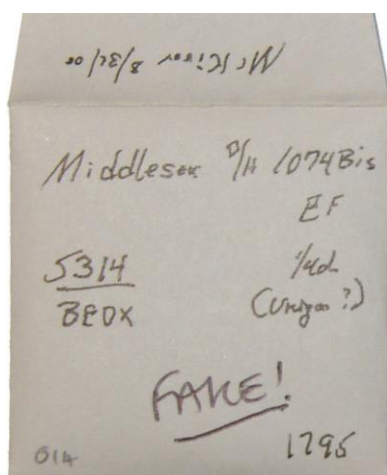 McKivor 8/31/00
Middlesex D/H 1074Bis
EF
5314 1/4d
BEDX (Unique?)
FAKE!
1795